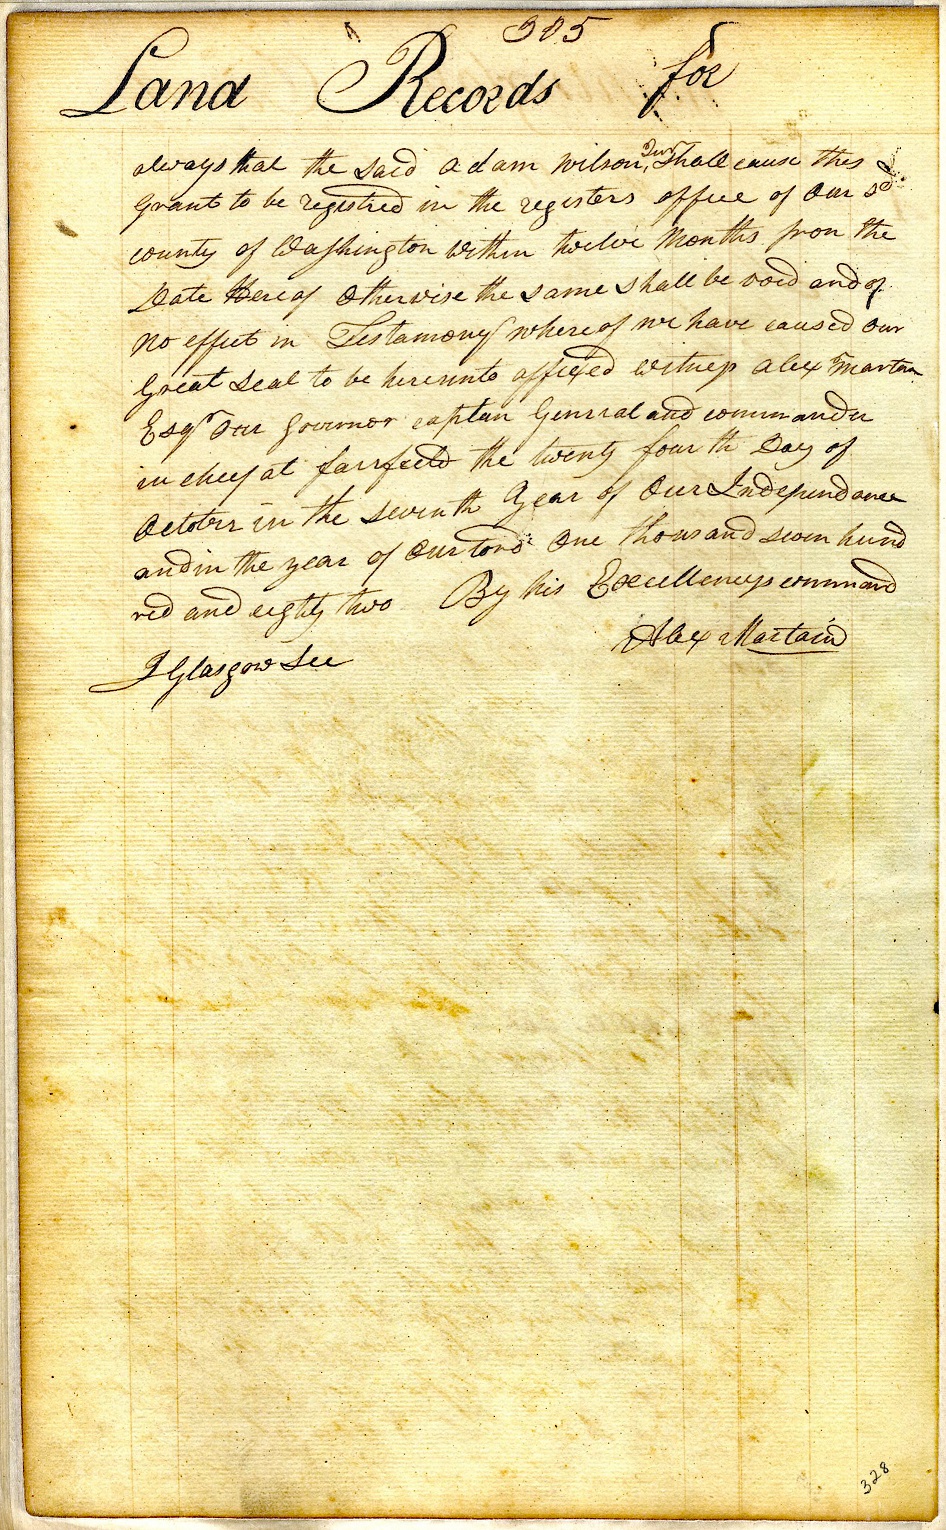 305
Land Records for
always that the said adam Wilson, Junr Shall cause this
grant to be registred in the registers office of Our sd
county of Washington within twelve Months from the
Date Hereof Otherwise the same shall be void and of
No effect in Testamony whereof we have caused our
Great Seal to be hereunto affixed witness alex Martan
Esqr Our Governor captan General and commander
in cheif at fairfield the twenty fourth Day of
October in the seventh Year of Our Independance
and in the year of Our Lord One thousand seven hund
red and eighty two By his Excellencys command
Alex Martain
J Glasgow Sec
328